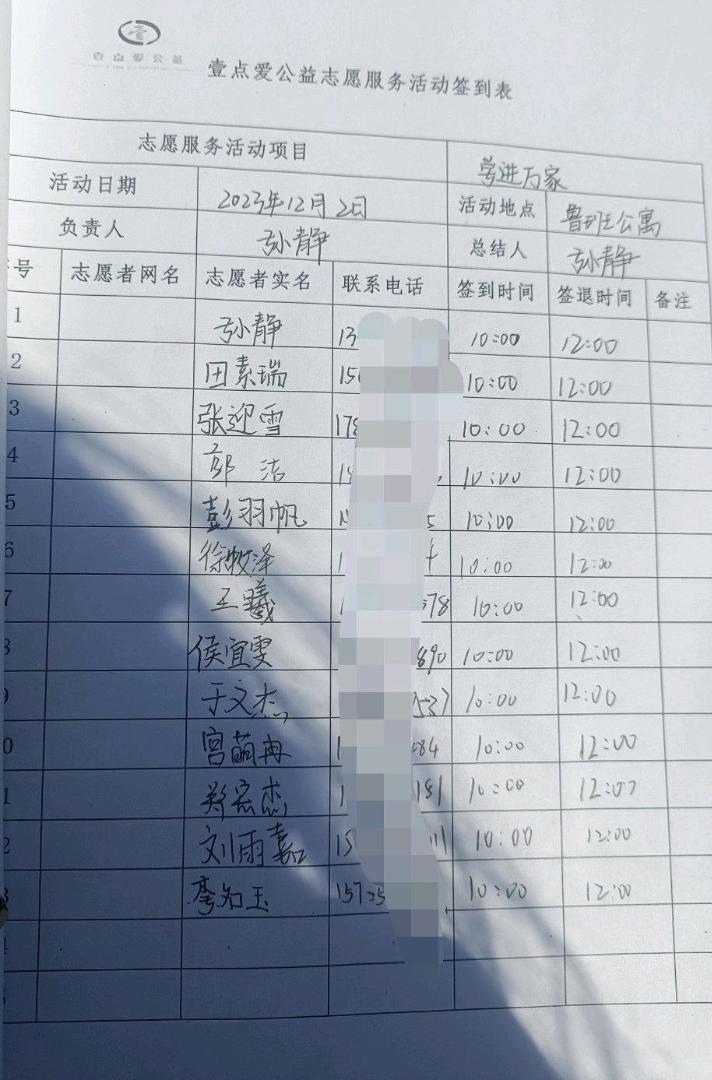 壹点爱公益
壹点爱公益志愿服务活动签到表
志愿服务活动项目 学进万家
活动日期 2023年12月2日 活动地点 鲁班公寓
负责人 孙静 总结人 孙静
号 志愿者网名 志愿者实名 联系电话 签到时间 签退时间 备注
1 孙静 13 10:00 12:00
2 田素瑞 150 10:00 12:00
3 张迎雪 178 10:00 12:00
4 郭洁 1 10:00 12:00
5 彭羽帆 5 10:00 12:00
6 徐牧泽 1 10:00 12:00
7 王曦 578 10:00 12:00
侯宜雯 890 10:00 12:00
于文杰 537 10:00 12:00
0 宫萌冉 1 84 10:00 12:00
1 郑宏杰 1 181 10:00 12:00
2 刘雨嘉 15 11 10:00 12:00
3 李知玉 157 5 10:00 12:00